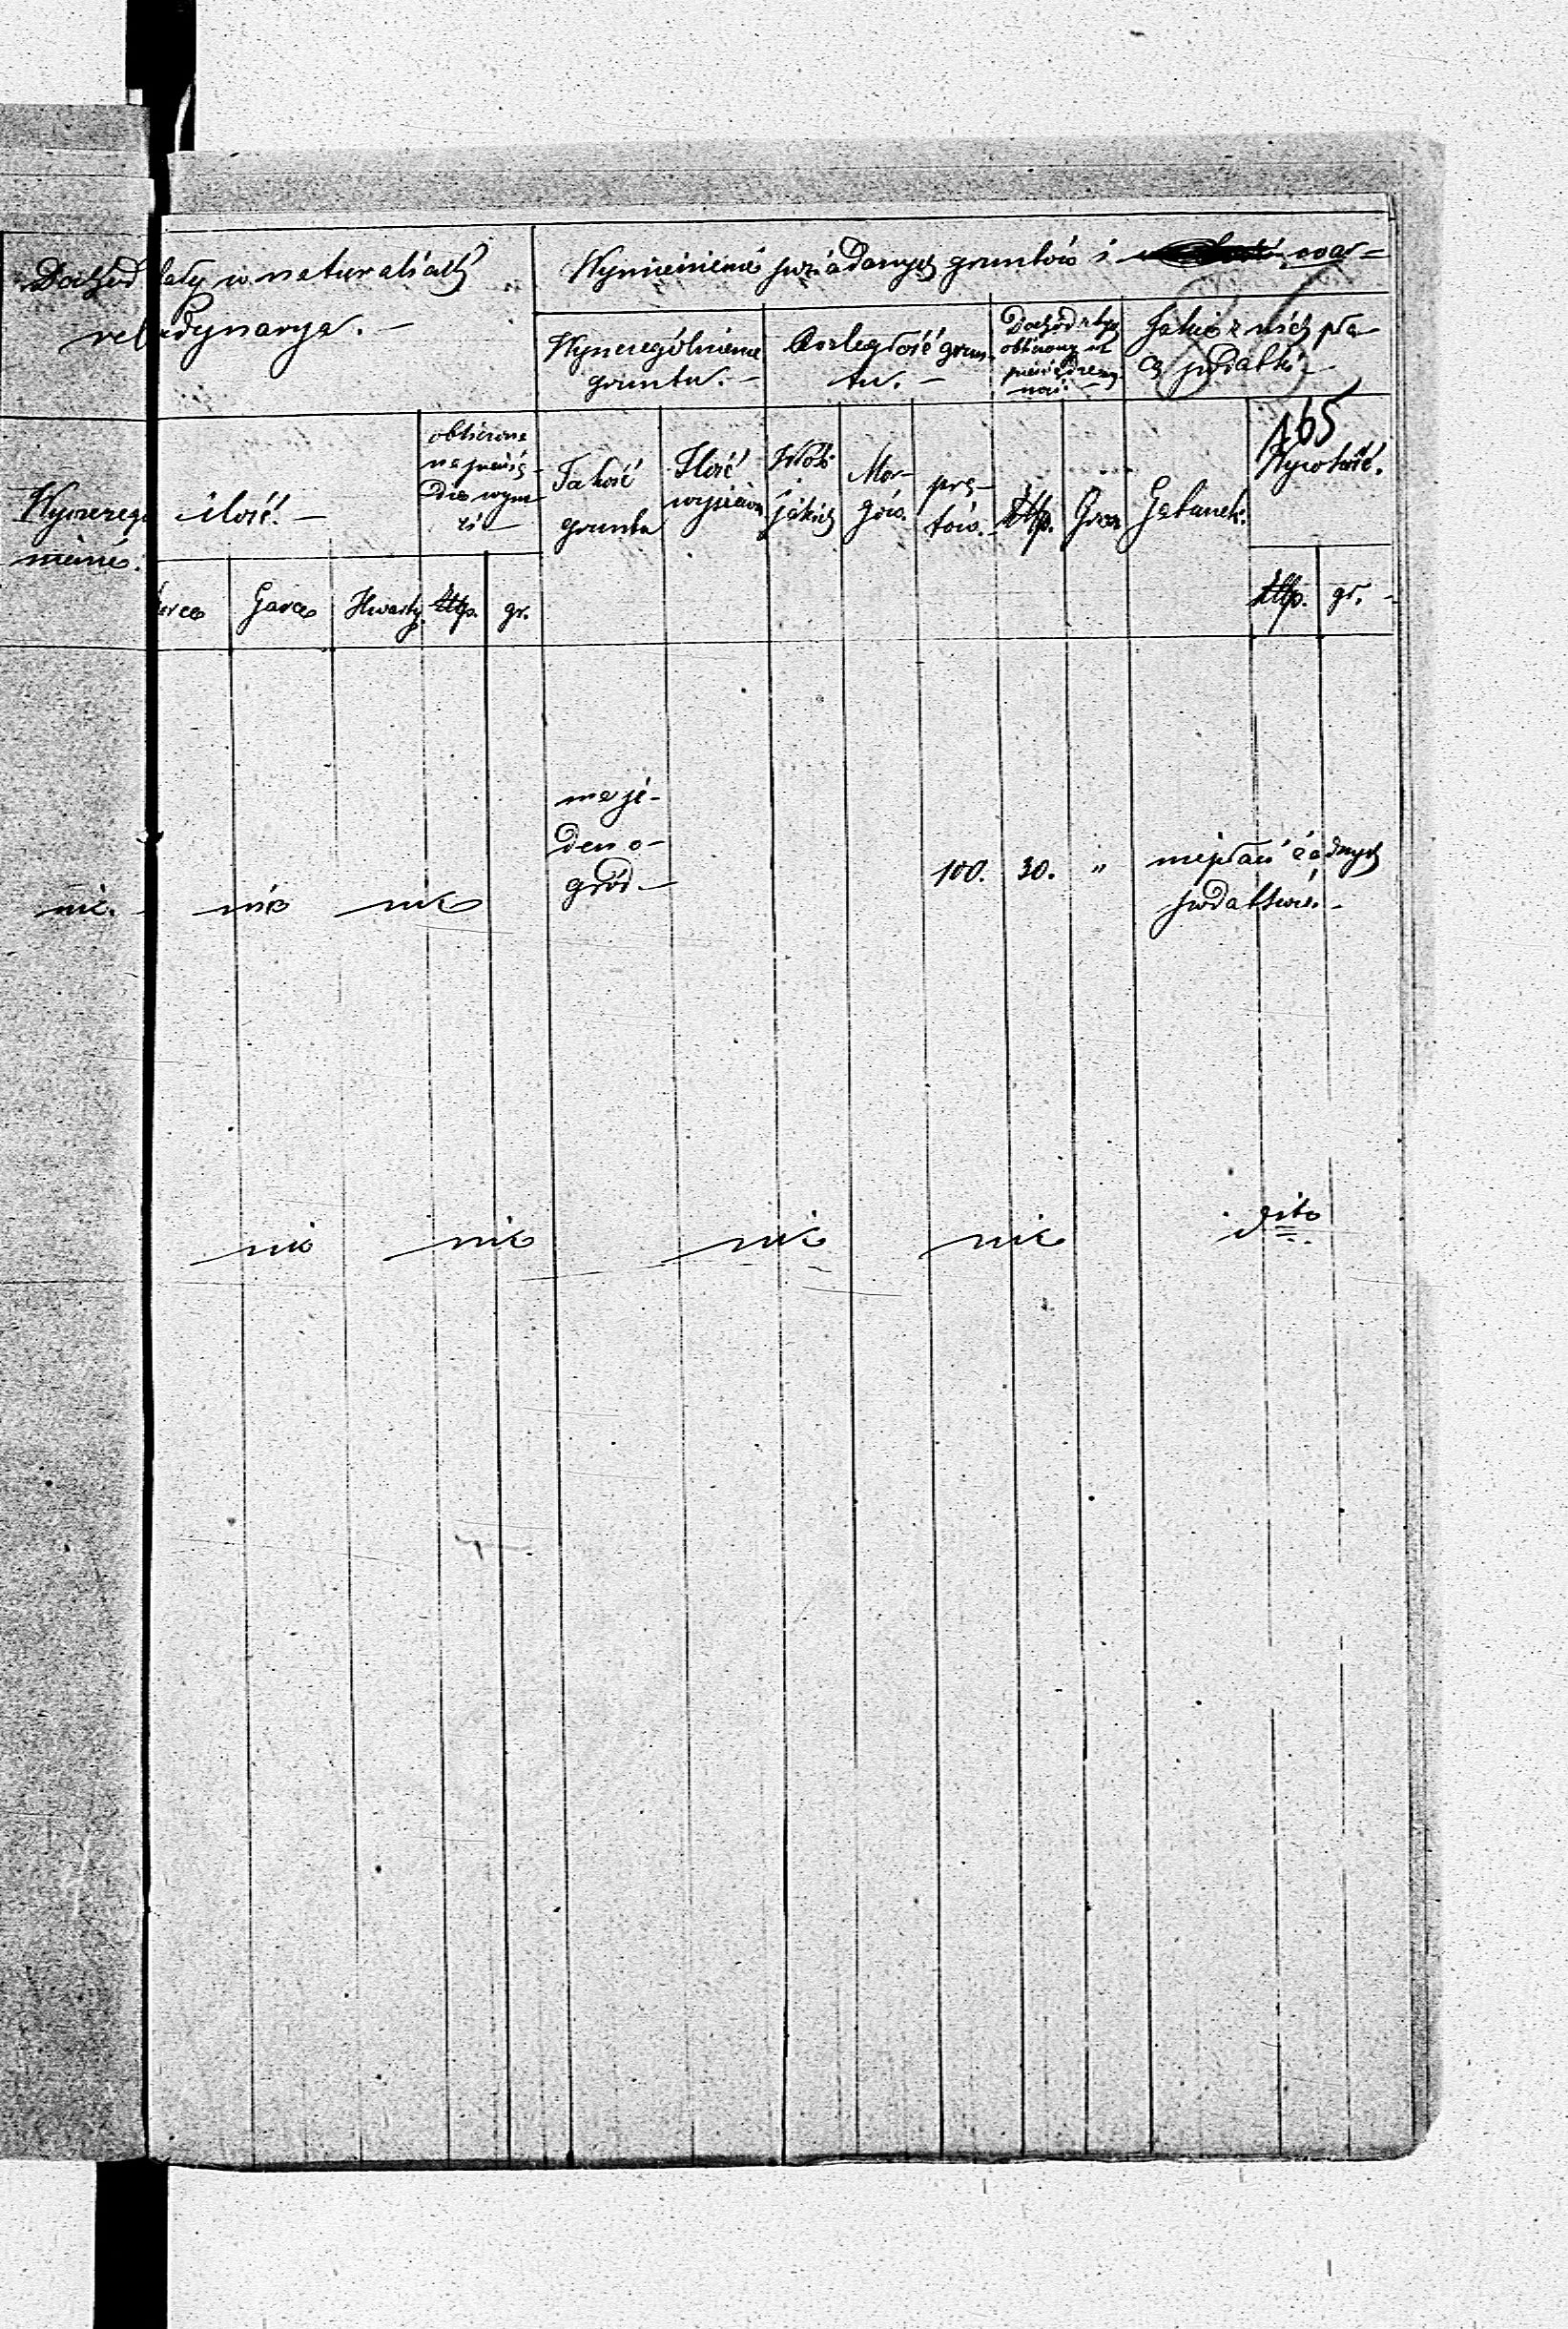 Dochód stały w naturaliach
vel ordynarya. —
Wymienienie posiadanych gruntów i war=
Wyszczególnienie
gruntu. —
Rozległość grun-
tu. —
Dochód z tąd
obliczony w
pieniądzach
Jakie z nich pła-
cą podatki —
165
Wyszczegó
nienié.
ilość. —
obliczona
na pienią-
dze wyno-
si —
Jakość
gruntu
Ilość
wysiewu
Włók
jakich
Mor-
gów.
prę-
tów.
Złłp.
Grosz
Gatunek.
Wysokość.
korce
Garce
Kwarty.
Złłp.
gr.
Złłp.
gr. -
ma je-
den o-
gród —
nic. -
nic
nic
100.
30.
"
niepłaci żadnych
podatków. -
nic
nic
nic
nic
dito